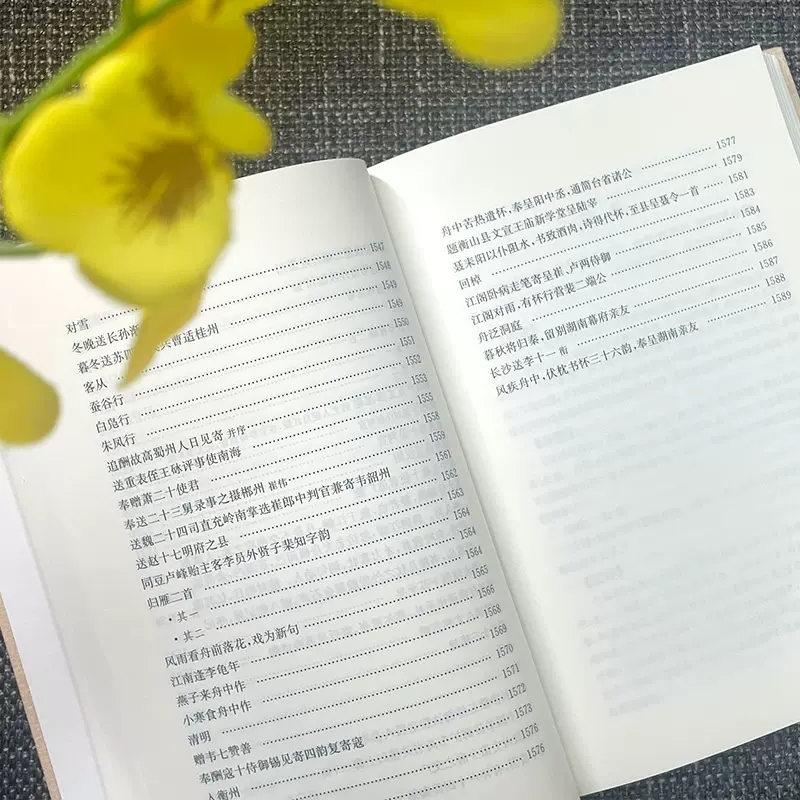 对雪 1547
冬晚送长孙 1548
暮冬送苏四 曹适桂州 1549
客从 1549
蚕谷行 1550
白凫行 1551
朱凤行 1552
追酬故高蜀州人日见寄 并序 1553
送重表侄王砅评事使南海 1555
奉赠萧二十使君 1558
奉送二十三舅录事之摄郴州 崔伟 1559
送魏二十四司直充岭南掌选崔郎中判官兼寄韦韶州 1561
送赵十七明府之县 1562
同豆卢峰贻主客李员外贤子棐知字韵 1563
归雁二首 1564
·其一 1564
·其二 1564
风雨看舟前落花，戏为新句 1565
江南逢李龟年 1566
燕子来舟中作 1568
小寒食舟中作 1569
清明 1570
赠韦七赞善 1571
奉酬寇十侍御锡见寄四韵复寄寇 1572
入衡州 1573
1576
1576
舟中苦热遣怀，奉呈阳中丞，通简台省诸公 1577
题衡山县文宣王庙新学堂呈陆宰 1579
聂耒阳以仆阻水，书致酒肉，诗得代怀，至县呈聂令一首 1581
回棹 1583
江阁卧病走笔寄呈崔、卢两侍御 1584
江阁对雨，有怀行营裴二端公 1585
舟泛洞庭 1586
暮秋将归秦，留别湖南幕府亲友 1587
长沙送李十一 衔 1588
风疾舟中，伏枕书怀三十六韵，奉呈湖南亲友 1589